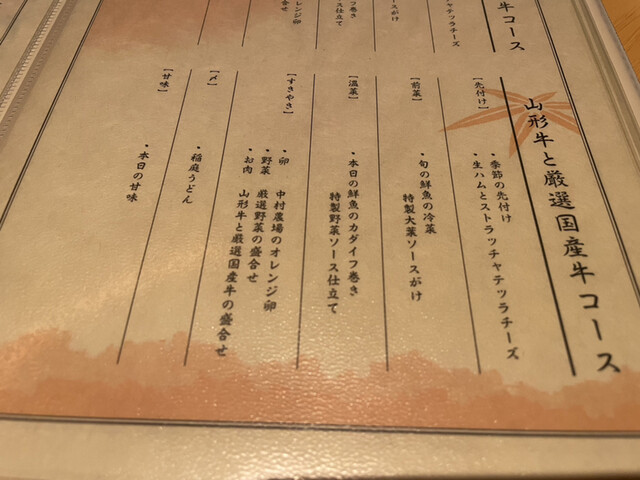 牛コース
チャテッラチーズ
スがけ
フ巻き
ス仕立て
オレンジ卵
合せ
山形牛と厳選国産牛コース
【先付け】
・季節の先付け
・生ハムとストラッチャテッラチーズ
【前菜】
・旬の鮮魚の冷菜
特製大葉ソースがけ
【温菜】
・本日の鮮魚のカダイフ巻き
特製野菜ソース仕立て
【すきやき】
・卵 中村農場のオレンジ卵
・野菜 厳選野菜の盛合せ
・お肉 山形牛と厳選国産牛の盛合せ
【〆】
・稲庭うどん
【甘味】
・本日の甘味